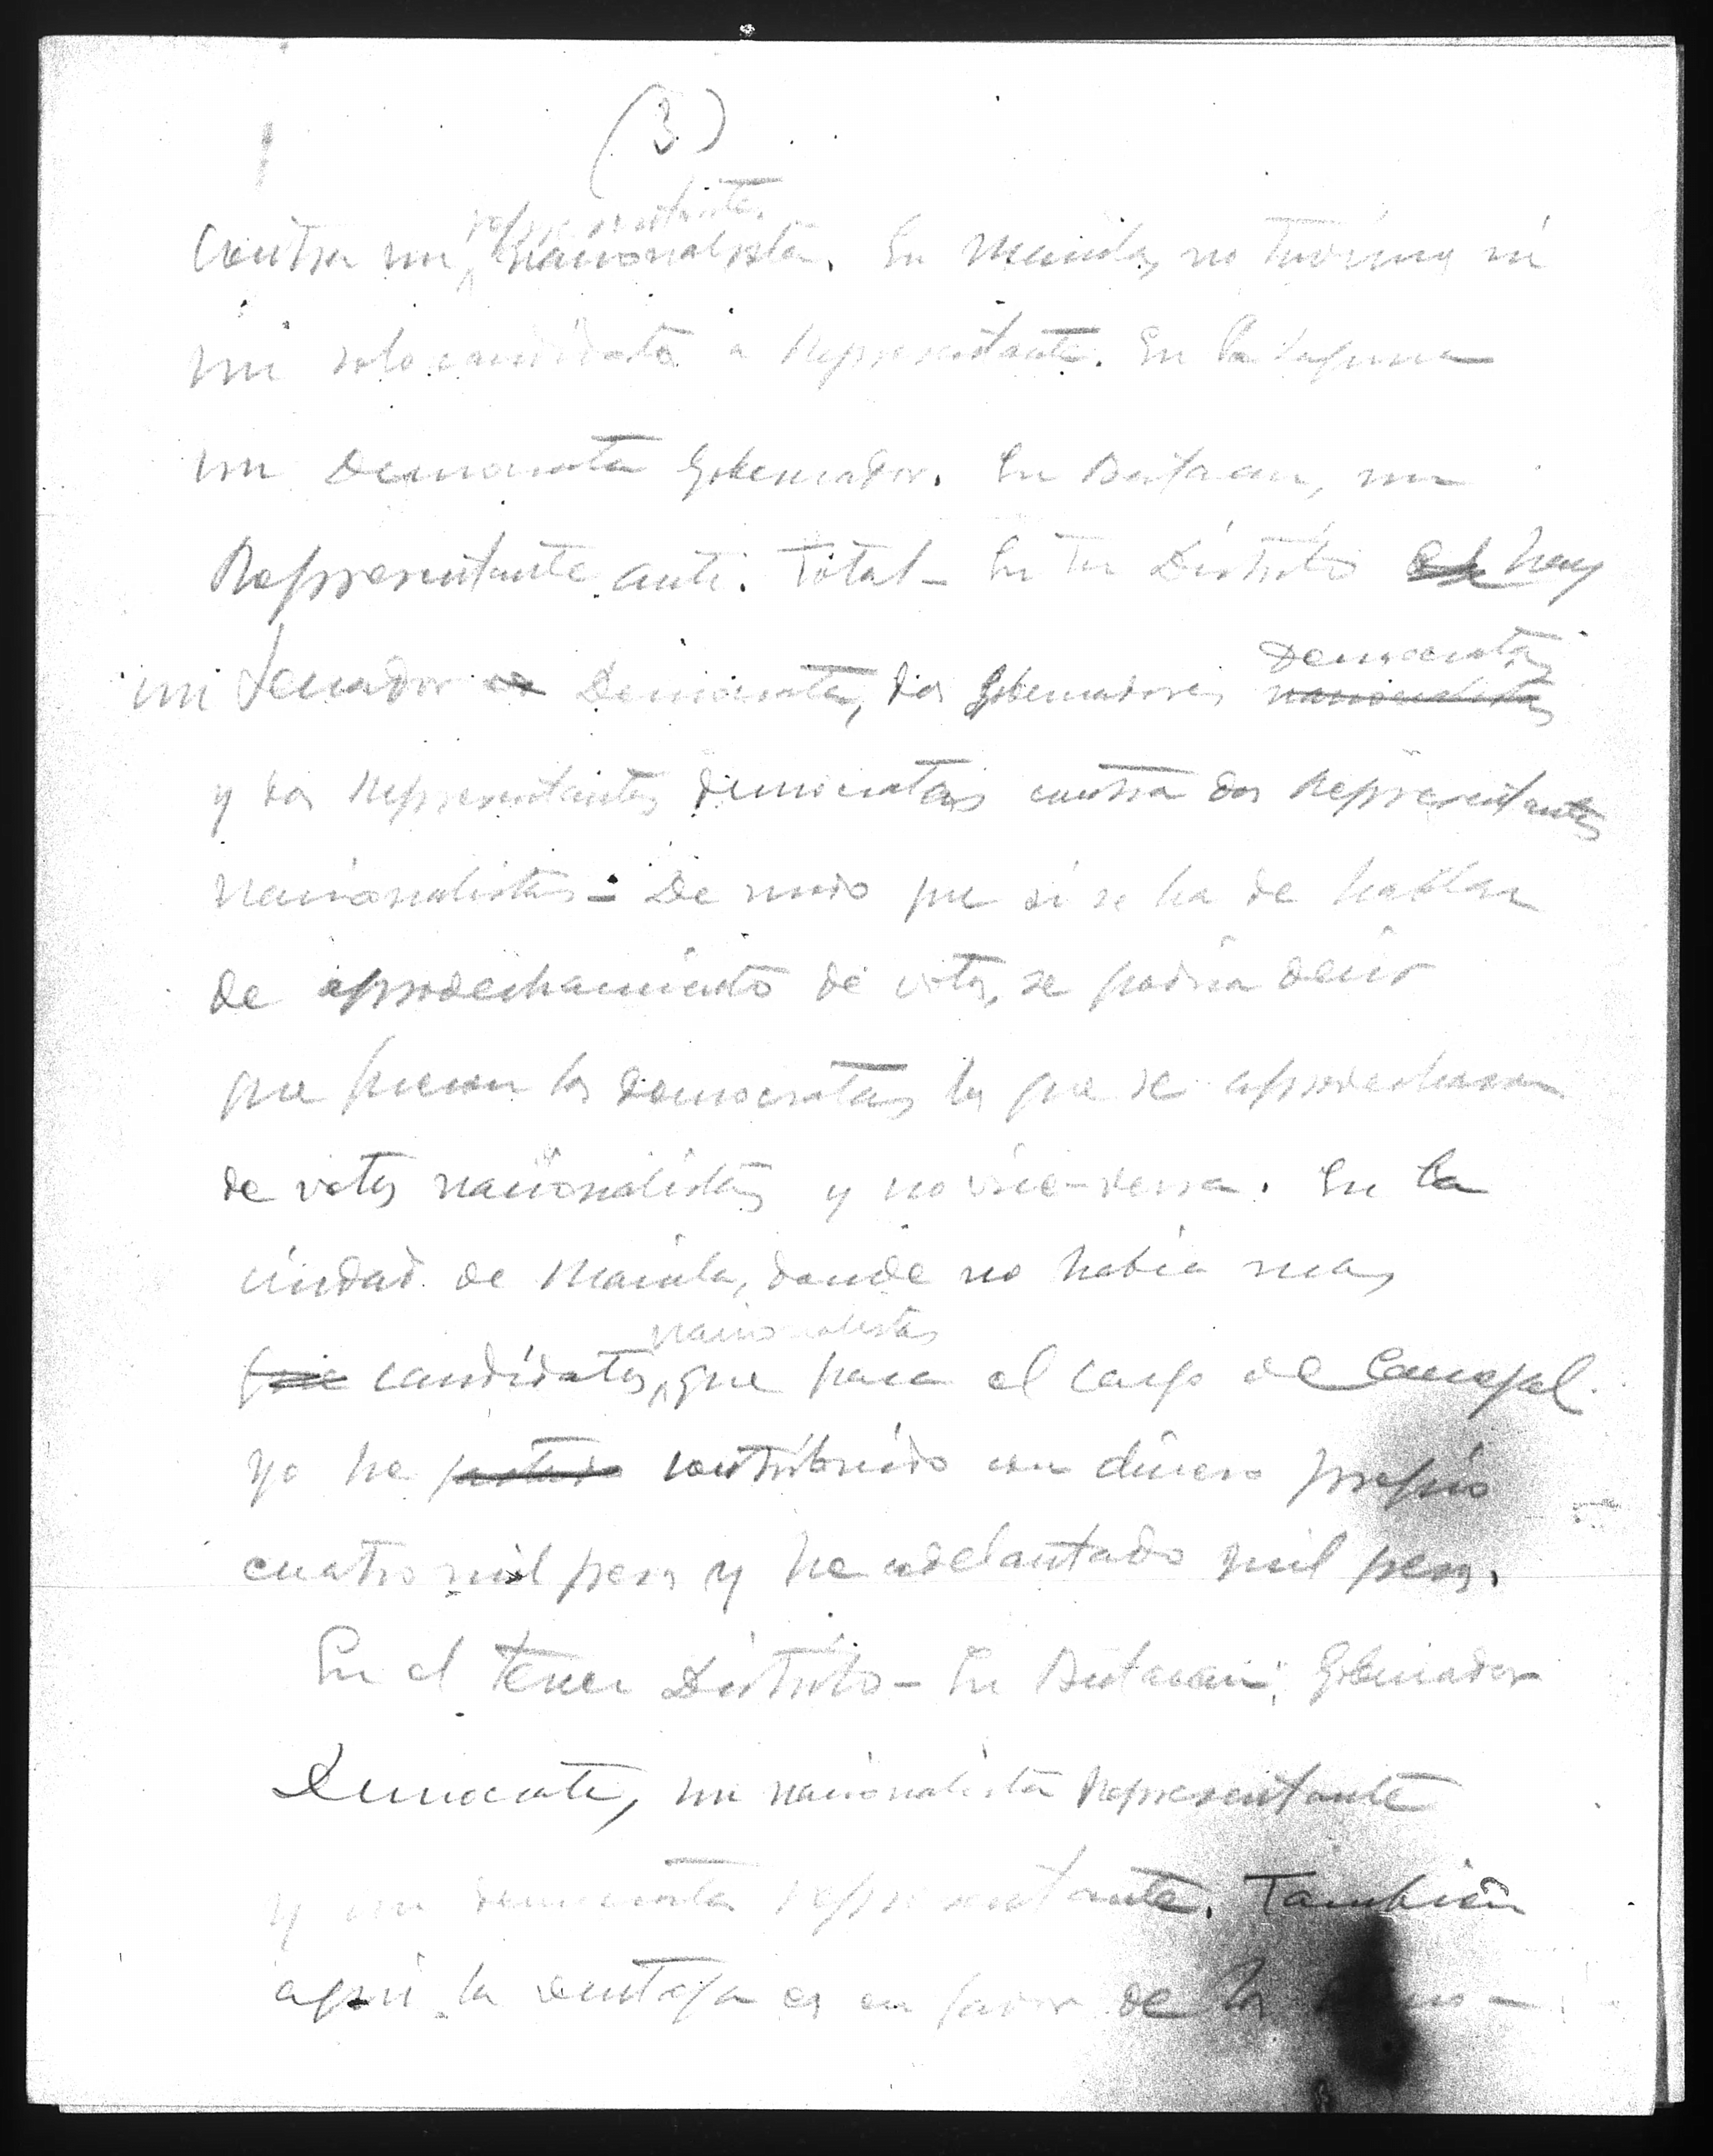 (3)
representante
contra un nacionalista. En Manila, no tuvimos ni
un solo candidato a Representante. En la Laguna
un Democrata Gobernador. En Bataan, un
Representante anti. Total - En tu Distrito hay
Democratas
un Senador Democrata, dos Gobernadores nacionalistas
y dos Representantes democratas contra dos Representantes
nacionalistas - De modo que si se ha de hablar
de aprovechamiento de votos, se podria decir
que fueron los democratas los que se aprovecharon
de votos nacionalistas y no vice-versa. En la
ciudad de Manila, donde no habia mas
nacionalistas
candidatos, que para el cargo de Concejal
yo he gastado contribuido con dinero propio
cuatro mil pesos y he adelantado mil pesos.
En el tercer Distrito - En Bulacan; Gobernador
Democrata, un nacionalista Representante
y un democrata representante. Tambien
aqui la ventaja es en favor de los